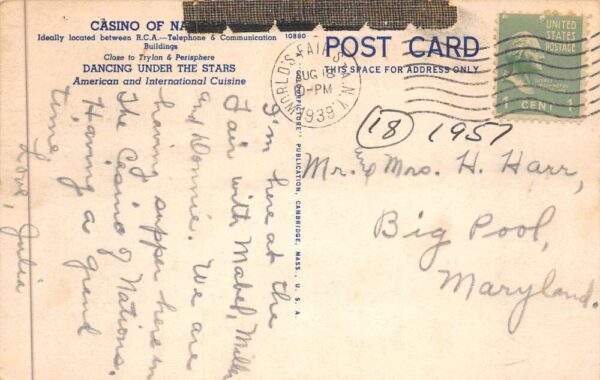 CASINO OF NA
Ideally located between R.C.A.—Telephone & Communication
Buildings
Close to Trylon & Perisphere
DANCING UNDER THE STARS
American and International Cuisine
10880
POST CARD
THIS SPACE FOR ADDRESS ONLY
WORLD'S FAIR STA. N.Y.
AUG
-PM
1939
UNITED
STATES
POSTAGE
1 CENT 1
PUBLICATION, CAMBRIDGE, MASS., U. S. A.
18 1957
Mr. & Mrs. H. Harr,
Big Pool,
Maryland.
I'm here at the
Fair with Mabel, Miller
and Donnie. We are
having supper here in
The Casino of Nations.
Having a grand
time
Love, Julia